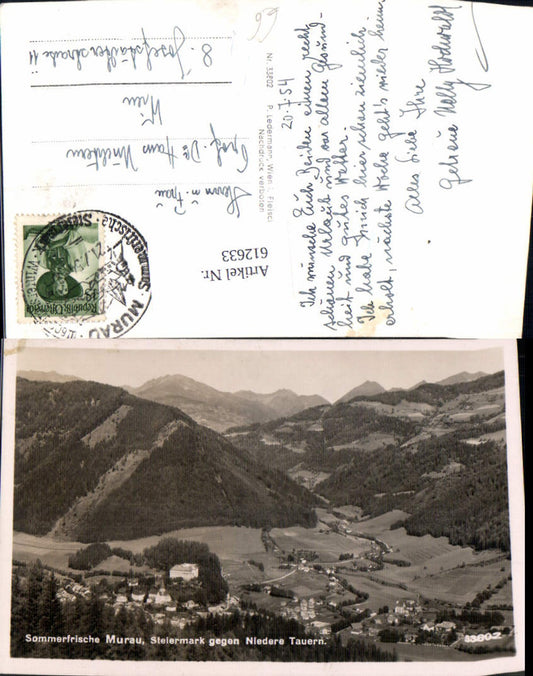 20.7.54
Ich wünsche Euch Beiden einen recht
schönen Urlaub und vor allem Gesund-
heit und gutes Wetter.
Ich habe mich hier schon ziemlich
erholt, nächste Woche geht's wieder heim
Alles Liebe Ihre
getreue Nelly Hochwald
Nr. 33802 P. Ledermann, Wien, I., Fleisc
Nachdruck verboten
Herrn u. Frau
Prof. Dr Hans
Wien
8. Josefstädterstrasse 11
66
Artikel Nr.
612633
Republik Österreich
MURAU
Sommerfrische Murau, Steiermark gegen Niedere Tauern.
33802